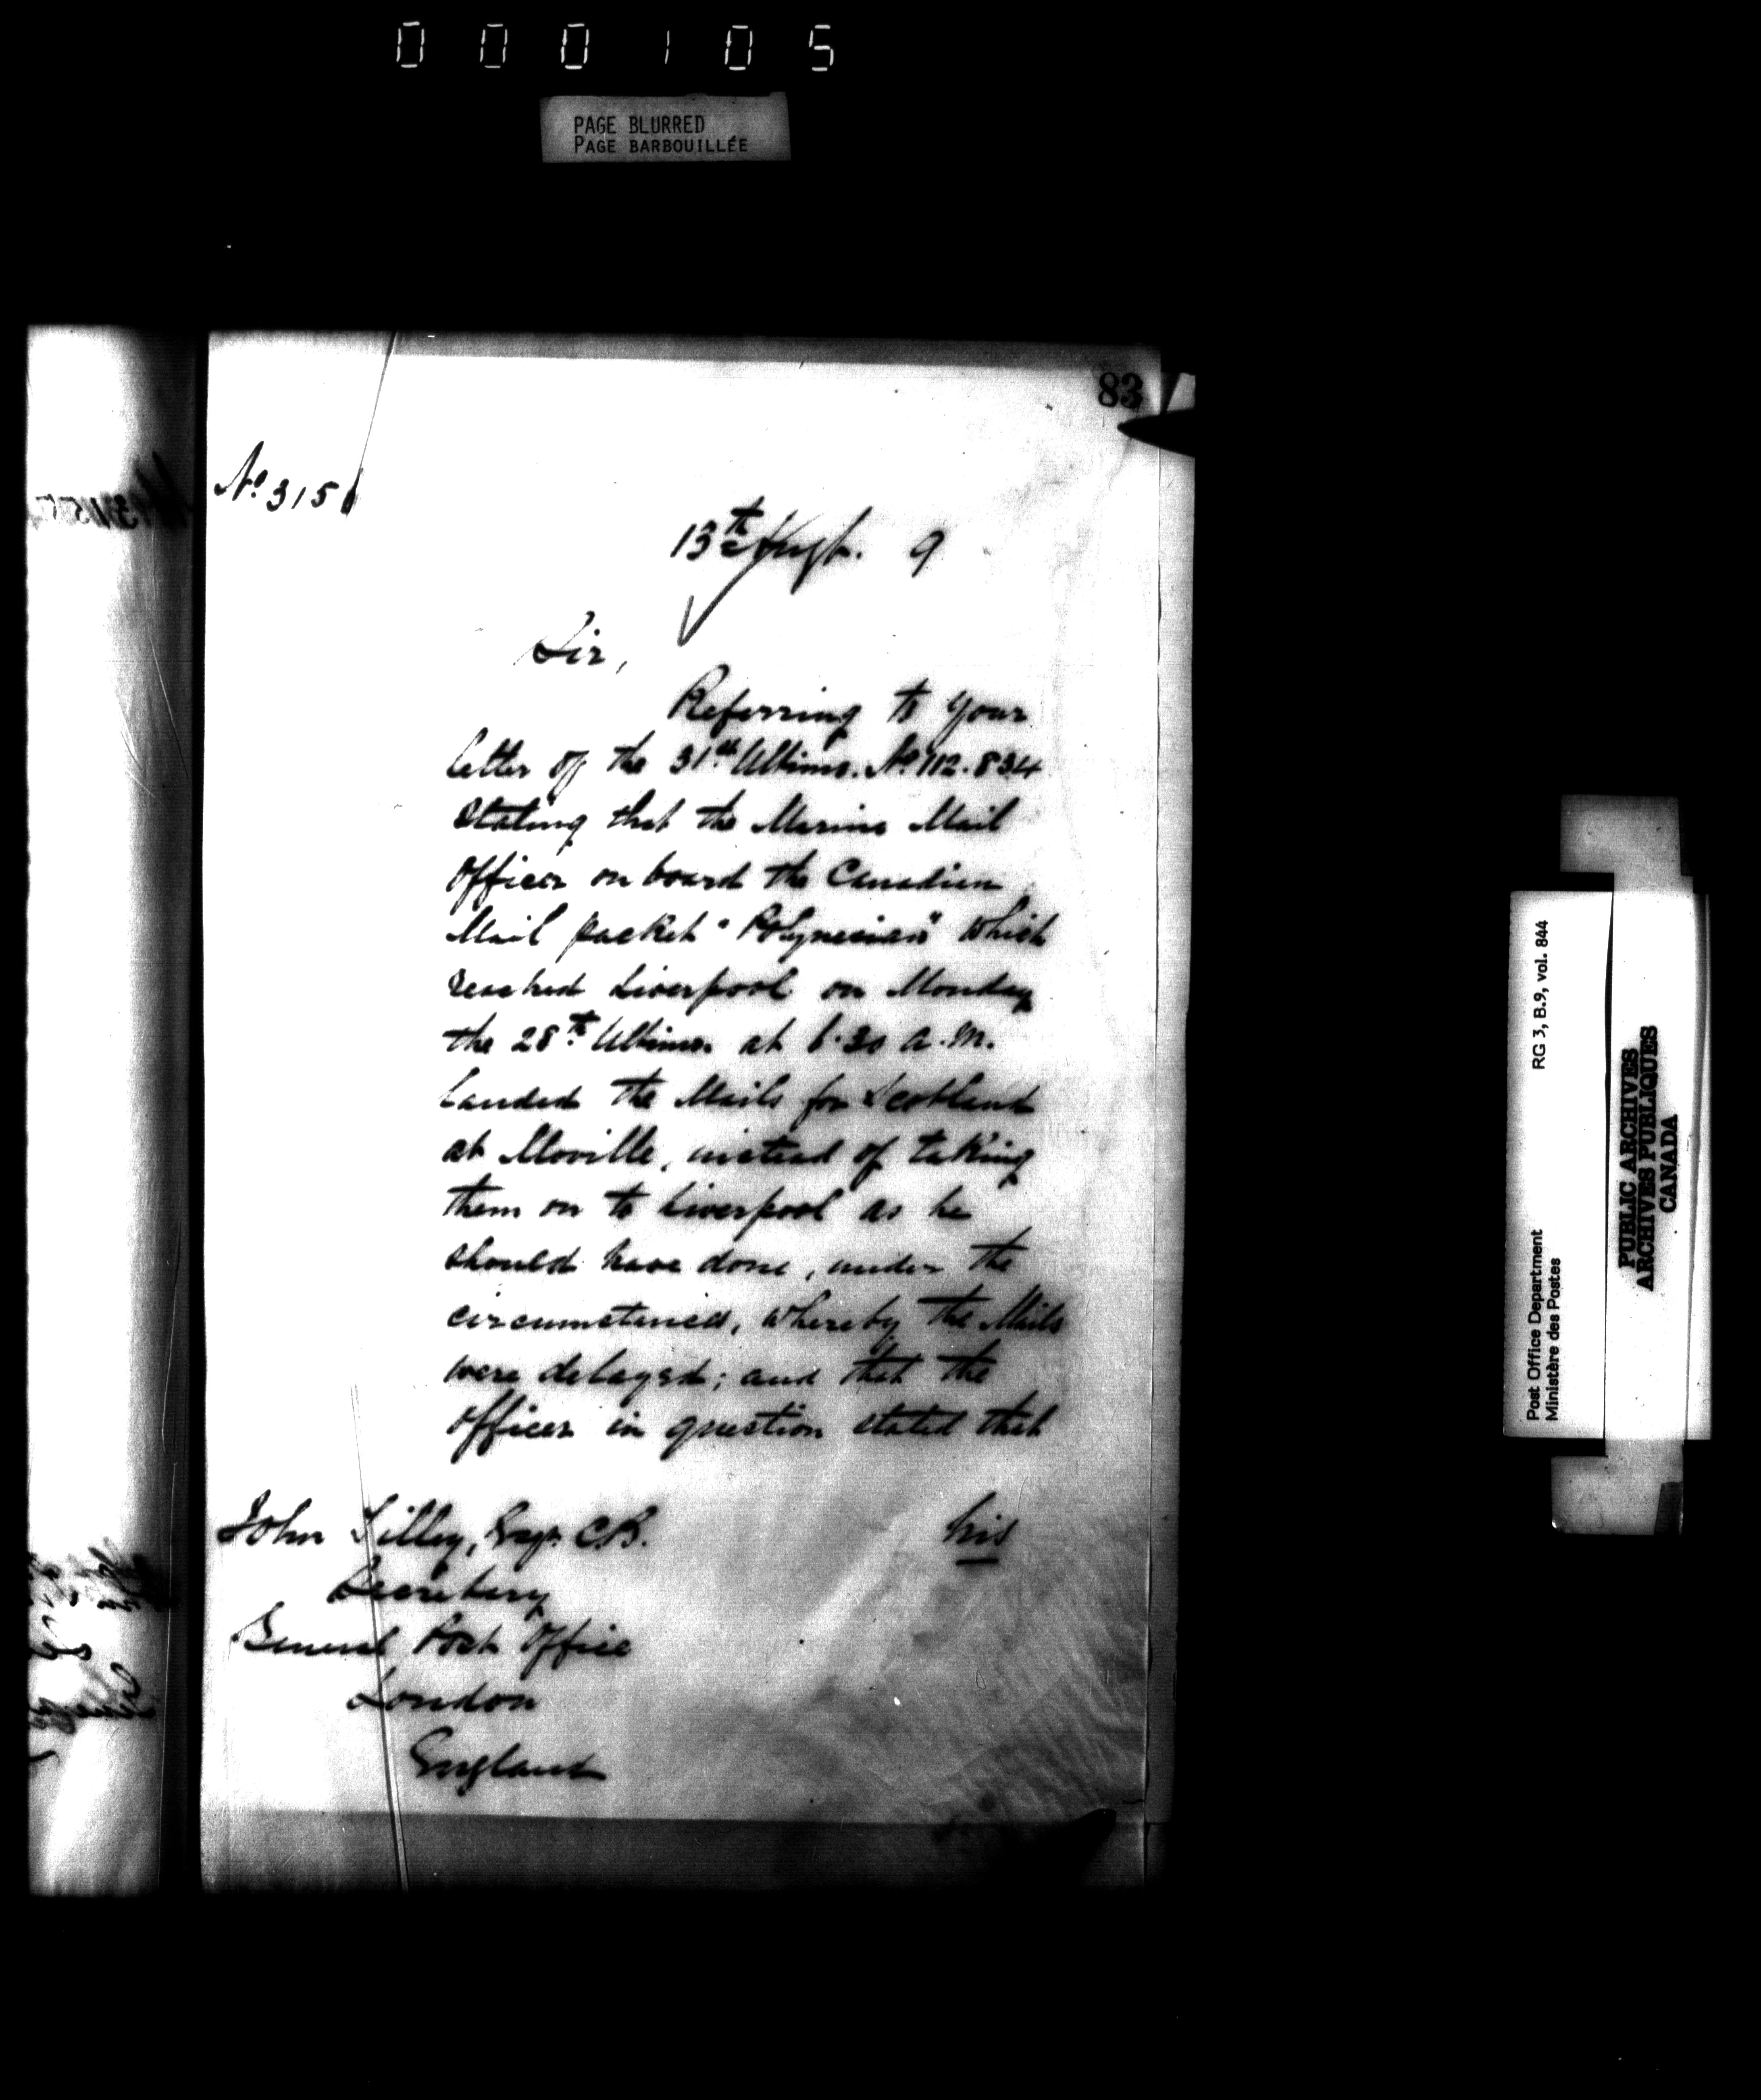 000105
PAGE BLURRED
PAGE BARBOUILLÉE
83
No. 3151
13th Augt. 9
Sir,
Referring to your
letter of the 31st Ultimo. No. 112.834
stating that the Marine Mail
Officer on board the Canadian
Mail packet "Polynesian" which
reached Liverpool on Monday
the 28th Ultimo. at 6.30 a.m.
landed the Mails for Scotland
at Moville, instead of taking
them on to Liverpool as he
should have done, under the
circumstances, whereby the Mails
were delayed; and that the
Officer in question stated that
his
John Tilley, Esqr. C.B.
Secretary
General Post Office
London
England
Post Office Department
Ministère des Postes
RG 3, B.9, vol. 844
PUBLIC ARCHIVES
ARCHIVES PUBLIQUES
CANADA